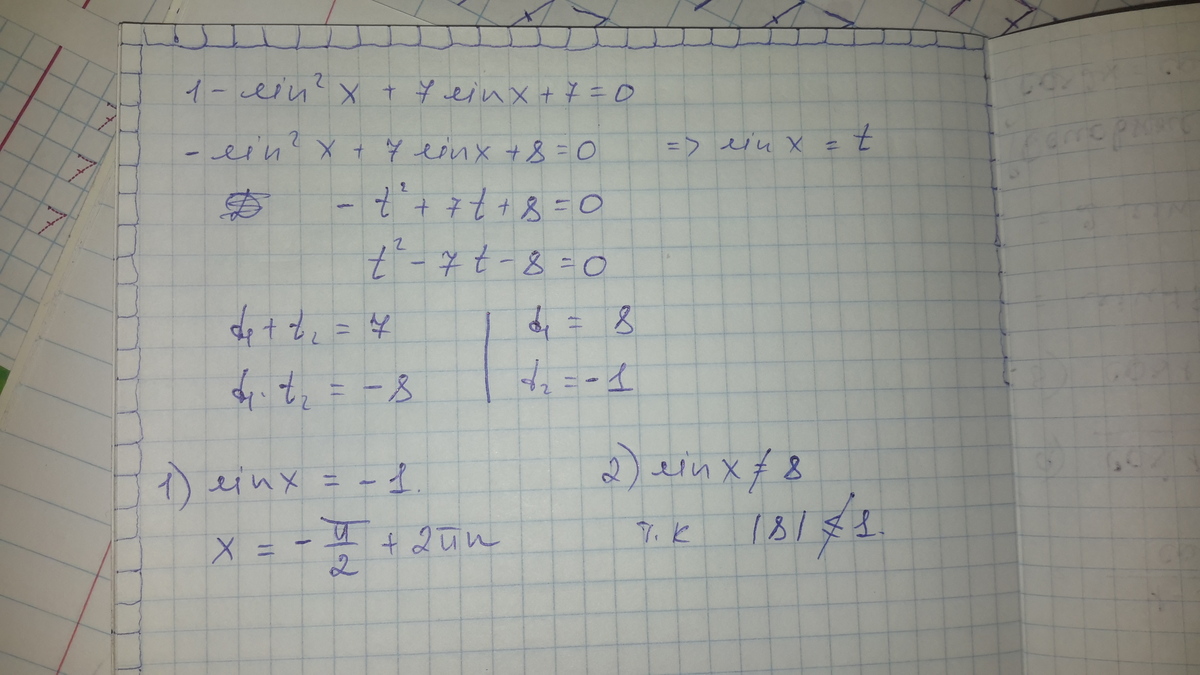 1 - sin² x + 7 sinx + 7 = 0
- sin² x + 7 sinx + 8 = 0 => sin x = t
- t² + 7t + 8 = 0
t² - 7t - 8 = 0
t₁ + t₂ = 7 | t₁ = 8
t₁ · t₂ = -8 | t₂ = -1
1) sinx = -1.
2) sinx ≠ 8
x = -π/2 + 2πn
т.к |8| ≰ 1.